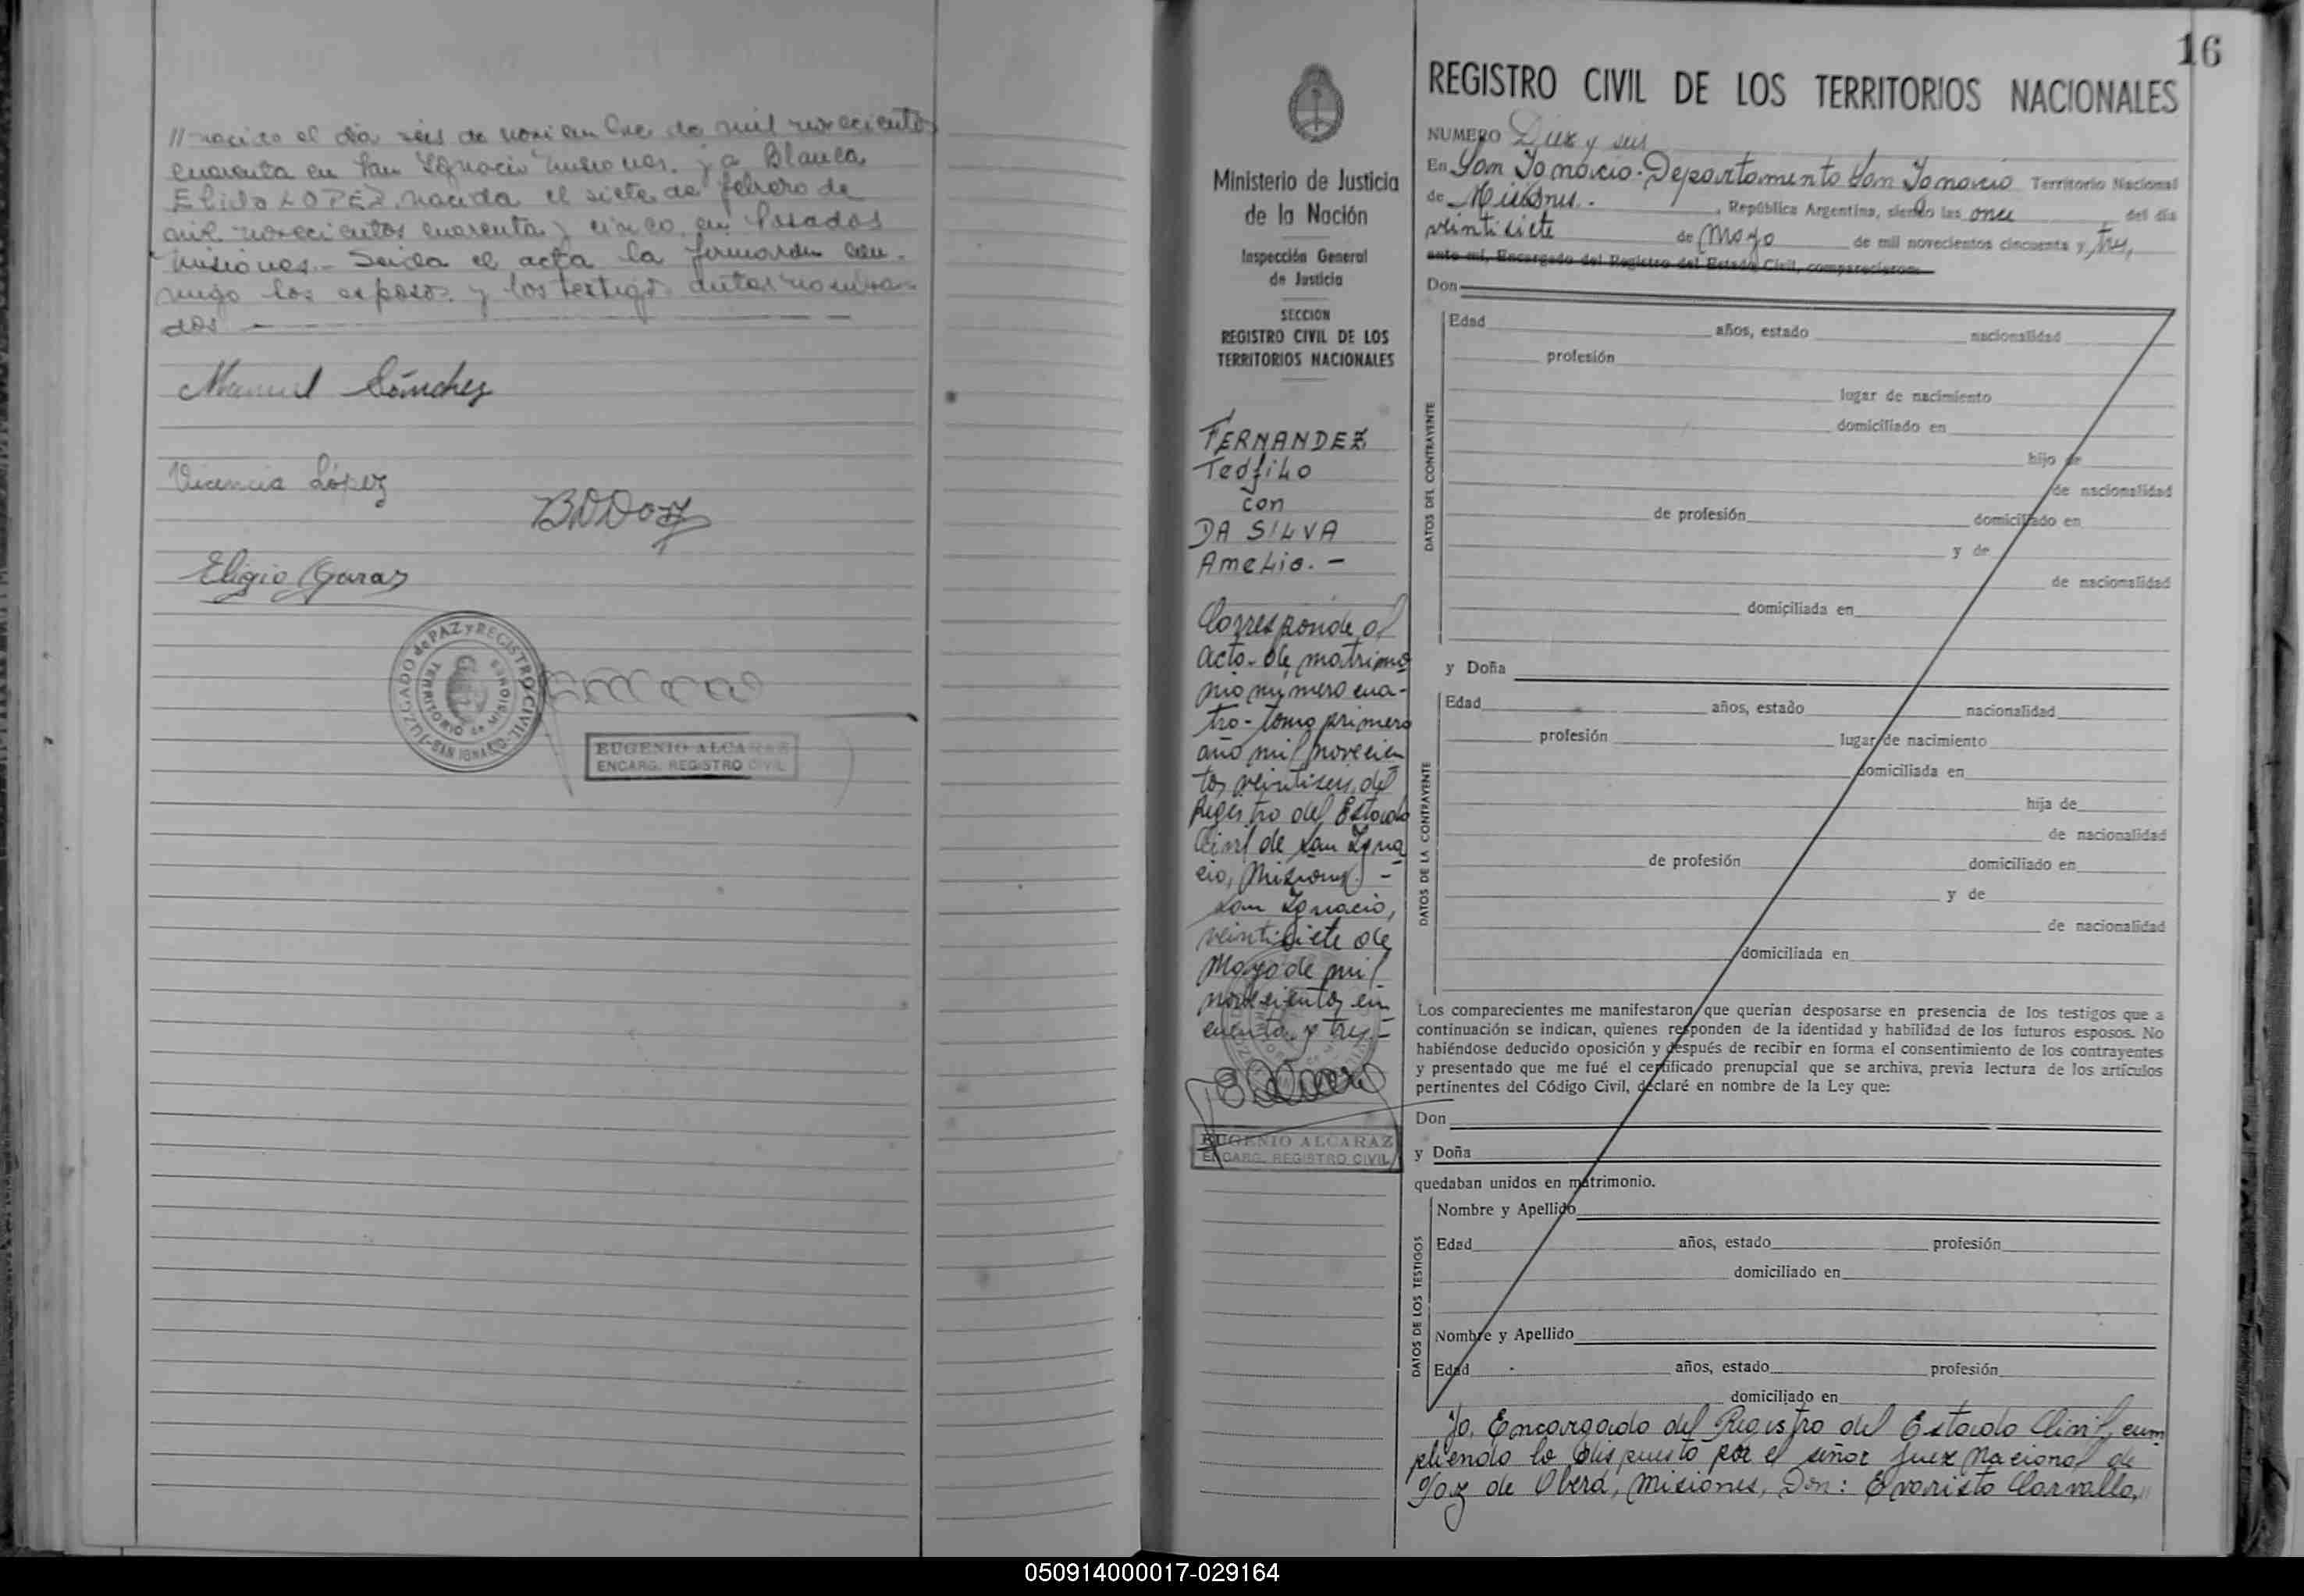 // nacido el día seis de noviembre de mil novecientos
cuarenta en San Ignacio Misiones. y a Blanca
Elida LOPEZ, nacida el siete de febrero de
mil novecientos cuarenta y cinco en Posadas
Misiones.- Leída el acta la firmarón con-
migo los esposos y los testigos antes nombra-
dos
Manuel Sánchez
Vicencia López
Eligio Garay
JUZGADO de PAZ y REGISTRO CIVIL
TERRITORIO de MISIONES
SAN IGNACIO
EUGENIO ALCARAZ
ENCARG. REGISTRO CIVIL
Ministerio de Justicia
de la Nación
Inspección General
de Justicia
SECCION
REGISTRO CIVIL DE LOS
TERRITORIOS NACIONALES
FERNANDEZ
Teófilo
con
DA SILVA
Amelia.-
Corresponde al
acta de matrimo
nio número cua-
tro-tomo primero
año mil novecien
tos veintiseis del
Registro del Estado
Civil de San Igna
cio, Misiones.-
San Ignacio,
veintisiete de
Mayo de mil
novecientos cin
cuenta y tres.-
EUGENIO ALCARAZ
ENCARG. REGISTRO CIVIL
16
REGISTRO CIVIL DE LOS TERRITORIOS NACIONALES
NUMERO Diez y seis
En San Ignacio-Departamento San Ignacio Territorio Nacional
de Misiones.- , República Argentina, siendo las once del día
veintisiete de Mayo de mil novecientos cincuenta y tres,
ante mí, Encargado del Registro del Estado Civil, comparecieron:
Don
DATOS DEL CONTRAYENTE
Edad años, estado nacionalidad
profesión
lugar de nacimiento
domiciliado en
hijo de
de nacionalidad
de profesión domiciliado en
y de
de nacionalidad
domiciliada en
y Doña
DATOS DE LA CONTRAYENTE
Edad años, estado nacionalidad
profesión lugar de nacimiento
domiciliada en
hija de
de nacionalidad
de profesión domiciliado en
y de
de nacionalidad
domiciliada en
Los comparecientes me manifestaron que querían desposarse en presencia de los testigos que a
continuación se indican, quienes responden de la identidad y habilidad de los futuros esposos. No
habiéndose deducido oposición y después de recibir en forma el consentimiento de los contrayentes
y presentado que me fué el certificado prenupcial que se archiva, previa lectura de los artículos
pertinentes del Código Civil, declaré en nombre de la Ley que:
Don
y Doña
quedaban unidos en matrimonio.
DATOS DE LOS TESTIGOS
Nombre y Apellido
Edad años, estado profesión
domiciliado en
Nombre y Apellido
Edad años, estado profesión
domiciliado en
Yo, Encargado del Registro del Estado Civil, cum
pliendo lo dispuesto por el señor Juez Nacional de
Paz de Oberá, Misiones, Don: Evaristo Carvallo,
050914000017-029164